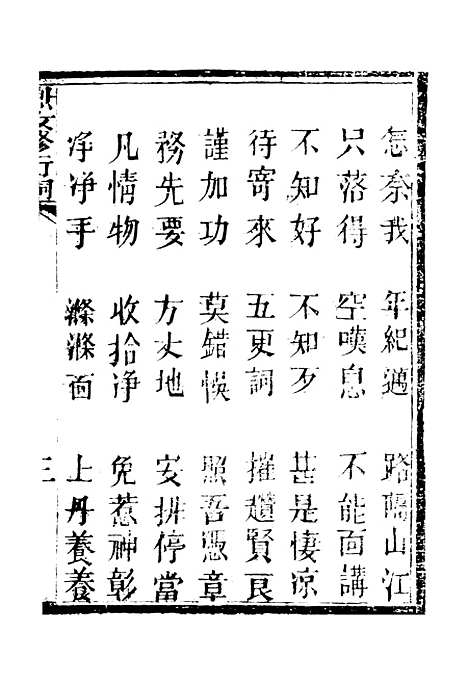 怎奈我 年紀邁 路隔山江
只落得 空嘆息 不能面講
不知好 不知歹 甚是悽凉
待寄來 五更詞 摧趲賢良
謹加功 莫錯悞 照吾憑章
務先要 方丈地 安排停當
凡情物 收拾净 免惹神彰
净净手 滌滌面 上丹養養
女修行詞
三